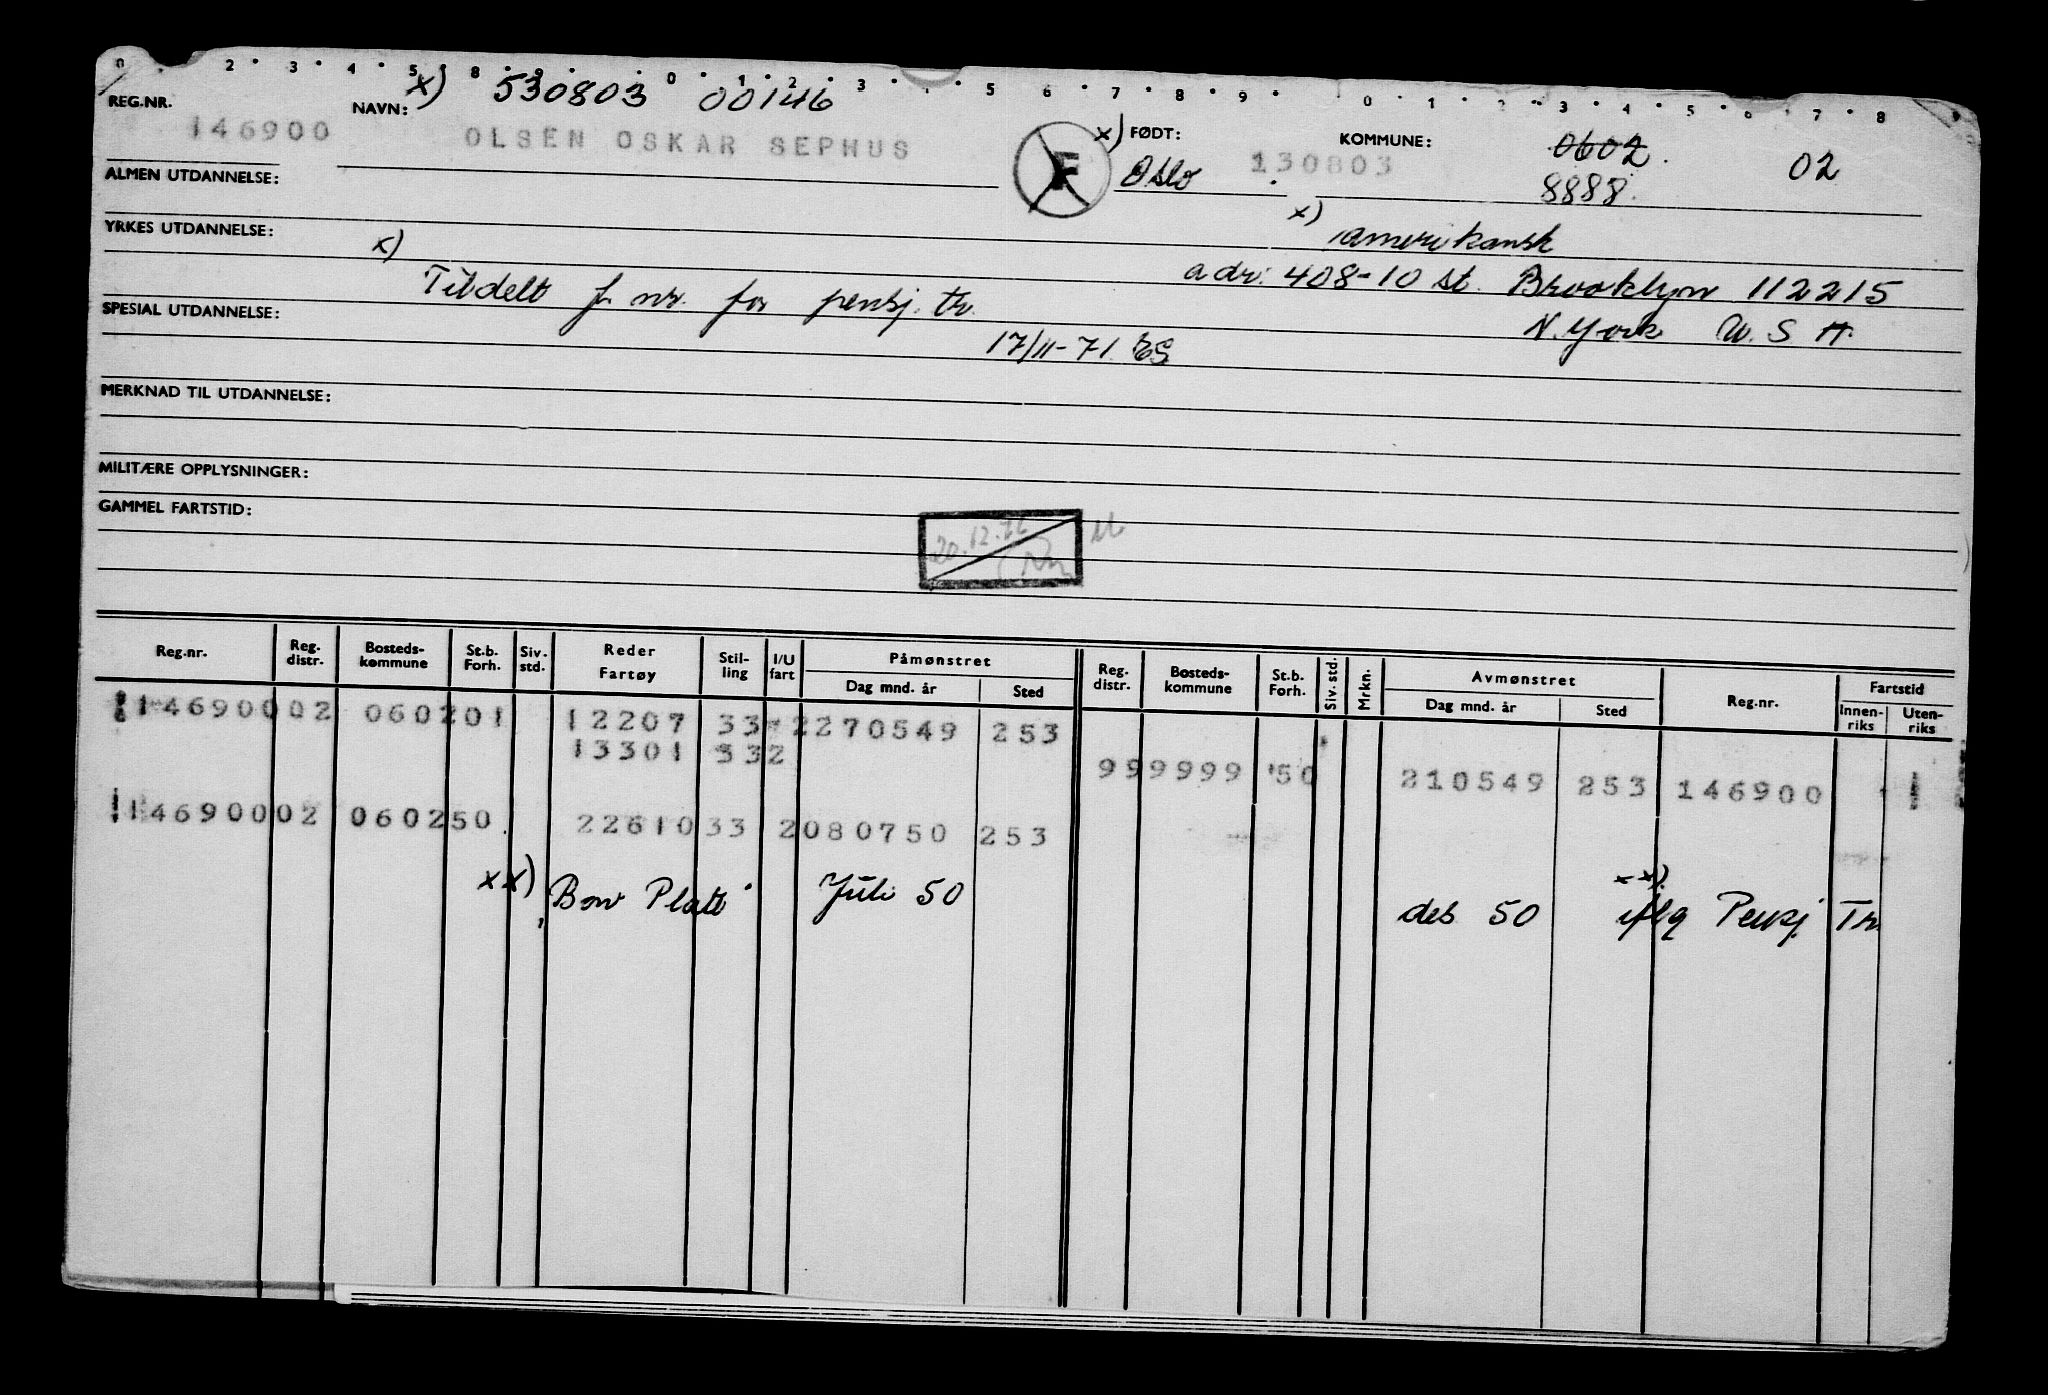 0 2 3 4 5 8 9 0 1 2 3 5 6 7 8 9 0 1 2 3 4 5 6 7 8 9
REG.NR. NAVN: x) 530803 00146
146900 OLSEN OSKAR SEPHUS F x) FØDT: Oslo 130803 KOMMUNE: 0602 02
8888.
ALMEN UTDANNELSE:
x) amerikansk
YRKES UTDANNELSE:
x) Tildelt f. nr. for pensj. tr. adr: 408-10 st. Brooklyn 112215
SPESIAL UTDANNELSE: 17/11-71 ES N. York U. S A.
MERKNAD TIL UTDANNELSE:
MILITÆRE OPPLYSNINGER:
GAMMEL FARTSTID:
20.12.72
Reg.nr. Reg. distr. Bosteds-kommune St.b. Forh. Siv. std. Reder Fartøy Stil-ling I/U fart Påmønstret Dag mnd. år Sted Reg. distr. Bosteds-kommune St.b. Forh. Siv. std. Mrkn. Avmønstret Dag mnd. år Sted Reg.nr. Fartstid Innen-riks Uten-riks
146900 02 0602 01 12207 33 2 270549 253
13301 332
99 9999 50 210549 253 146900
146900 02 0602 50 22610 33 2 080750 253
xx) "Bow Platt" Juli 50 des 50 xx) iflg Pensj Tr.